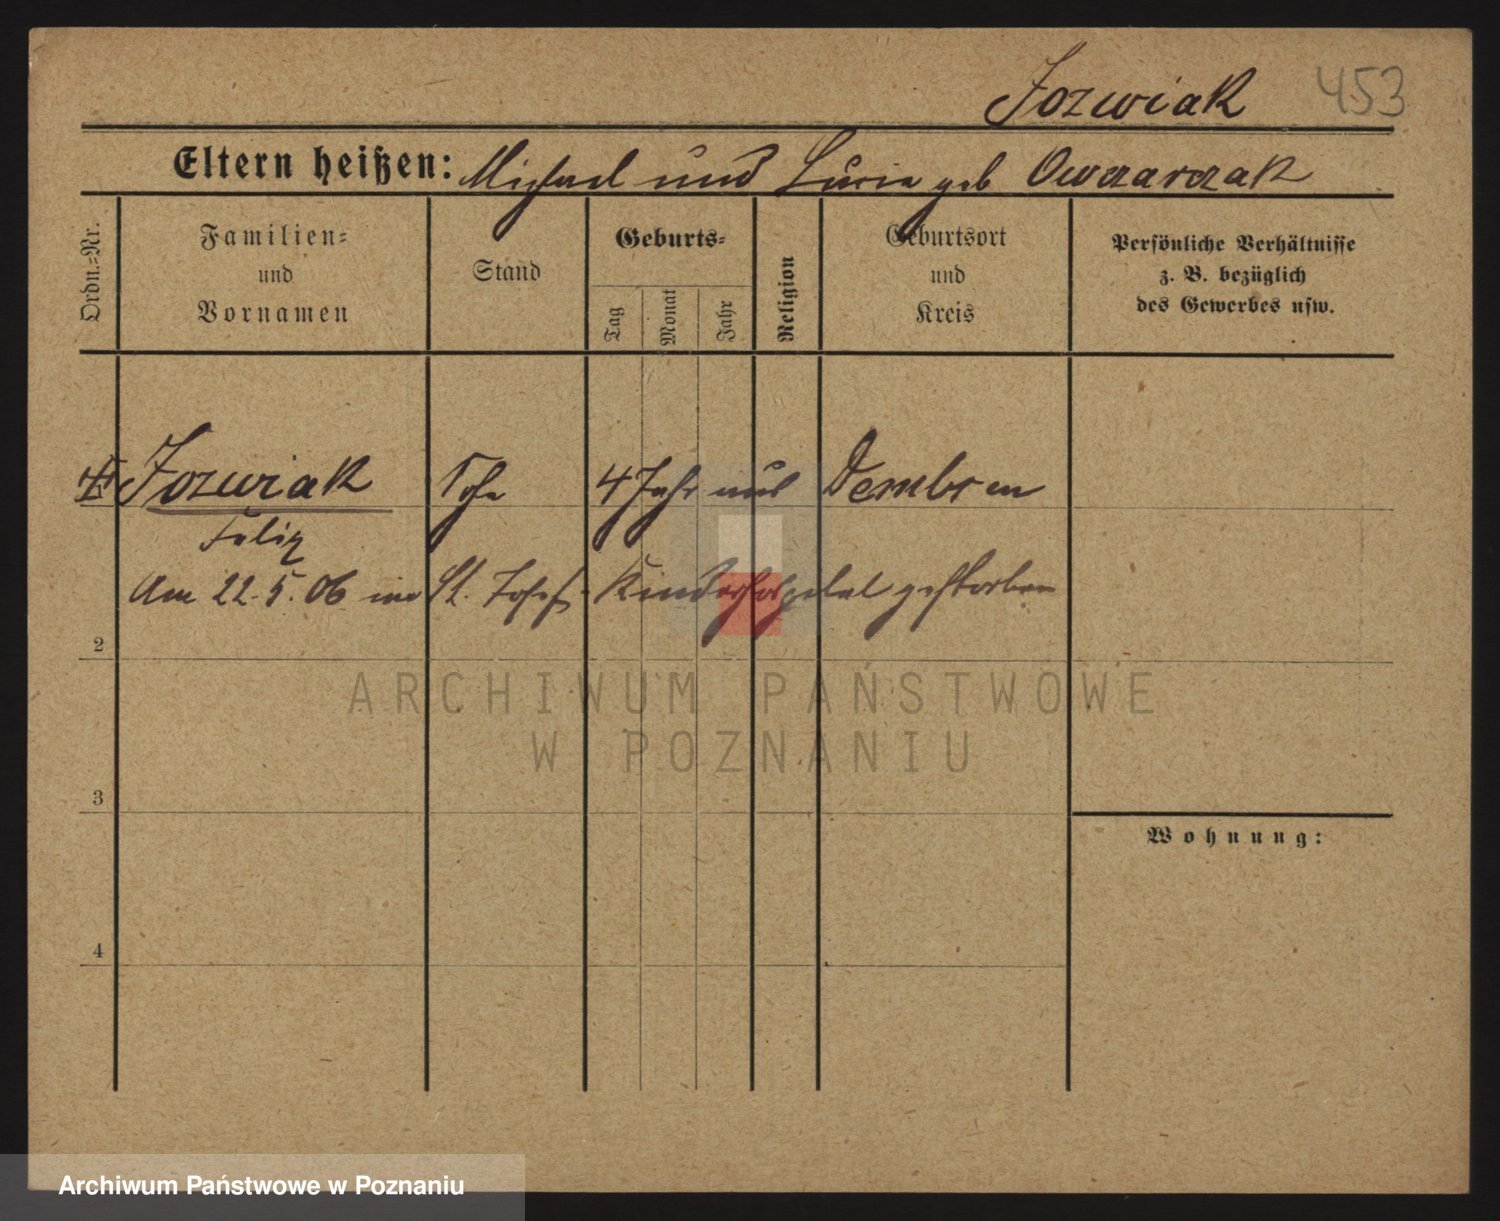 Jozwiak 453
Eltern heißen: Michael und Lucia geb Owczarczak
Ordn.-Nr.
Familien-
und
Vornamen
Stand
Geburts-
Tag
Monat
Jahr
Religion
Geburtsort
und
Kreis
Persönliche Verhältnisse
z. B. bezüglich
des Gewerbes usw.
Jozwiak Sohn 4 Jahr aus Dembsen
Felix
Am 22.5.06 im St. Josef-Kinderhospital gestorben
2
ARCHIWUM PAŃSTWOWE
W POZNANIU
3
Wohnung:
4
Archiwum Państwowe w Poznaniu